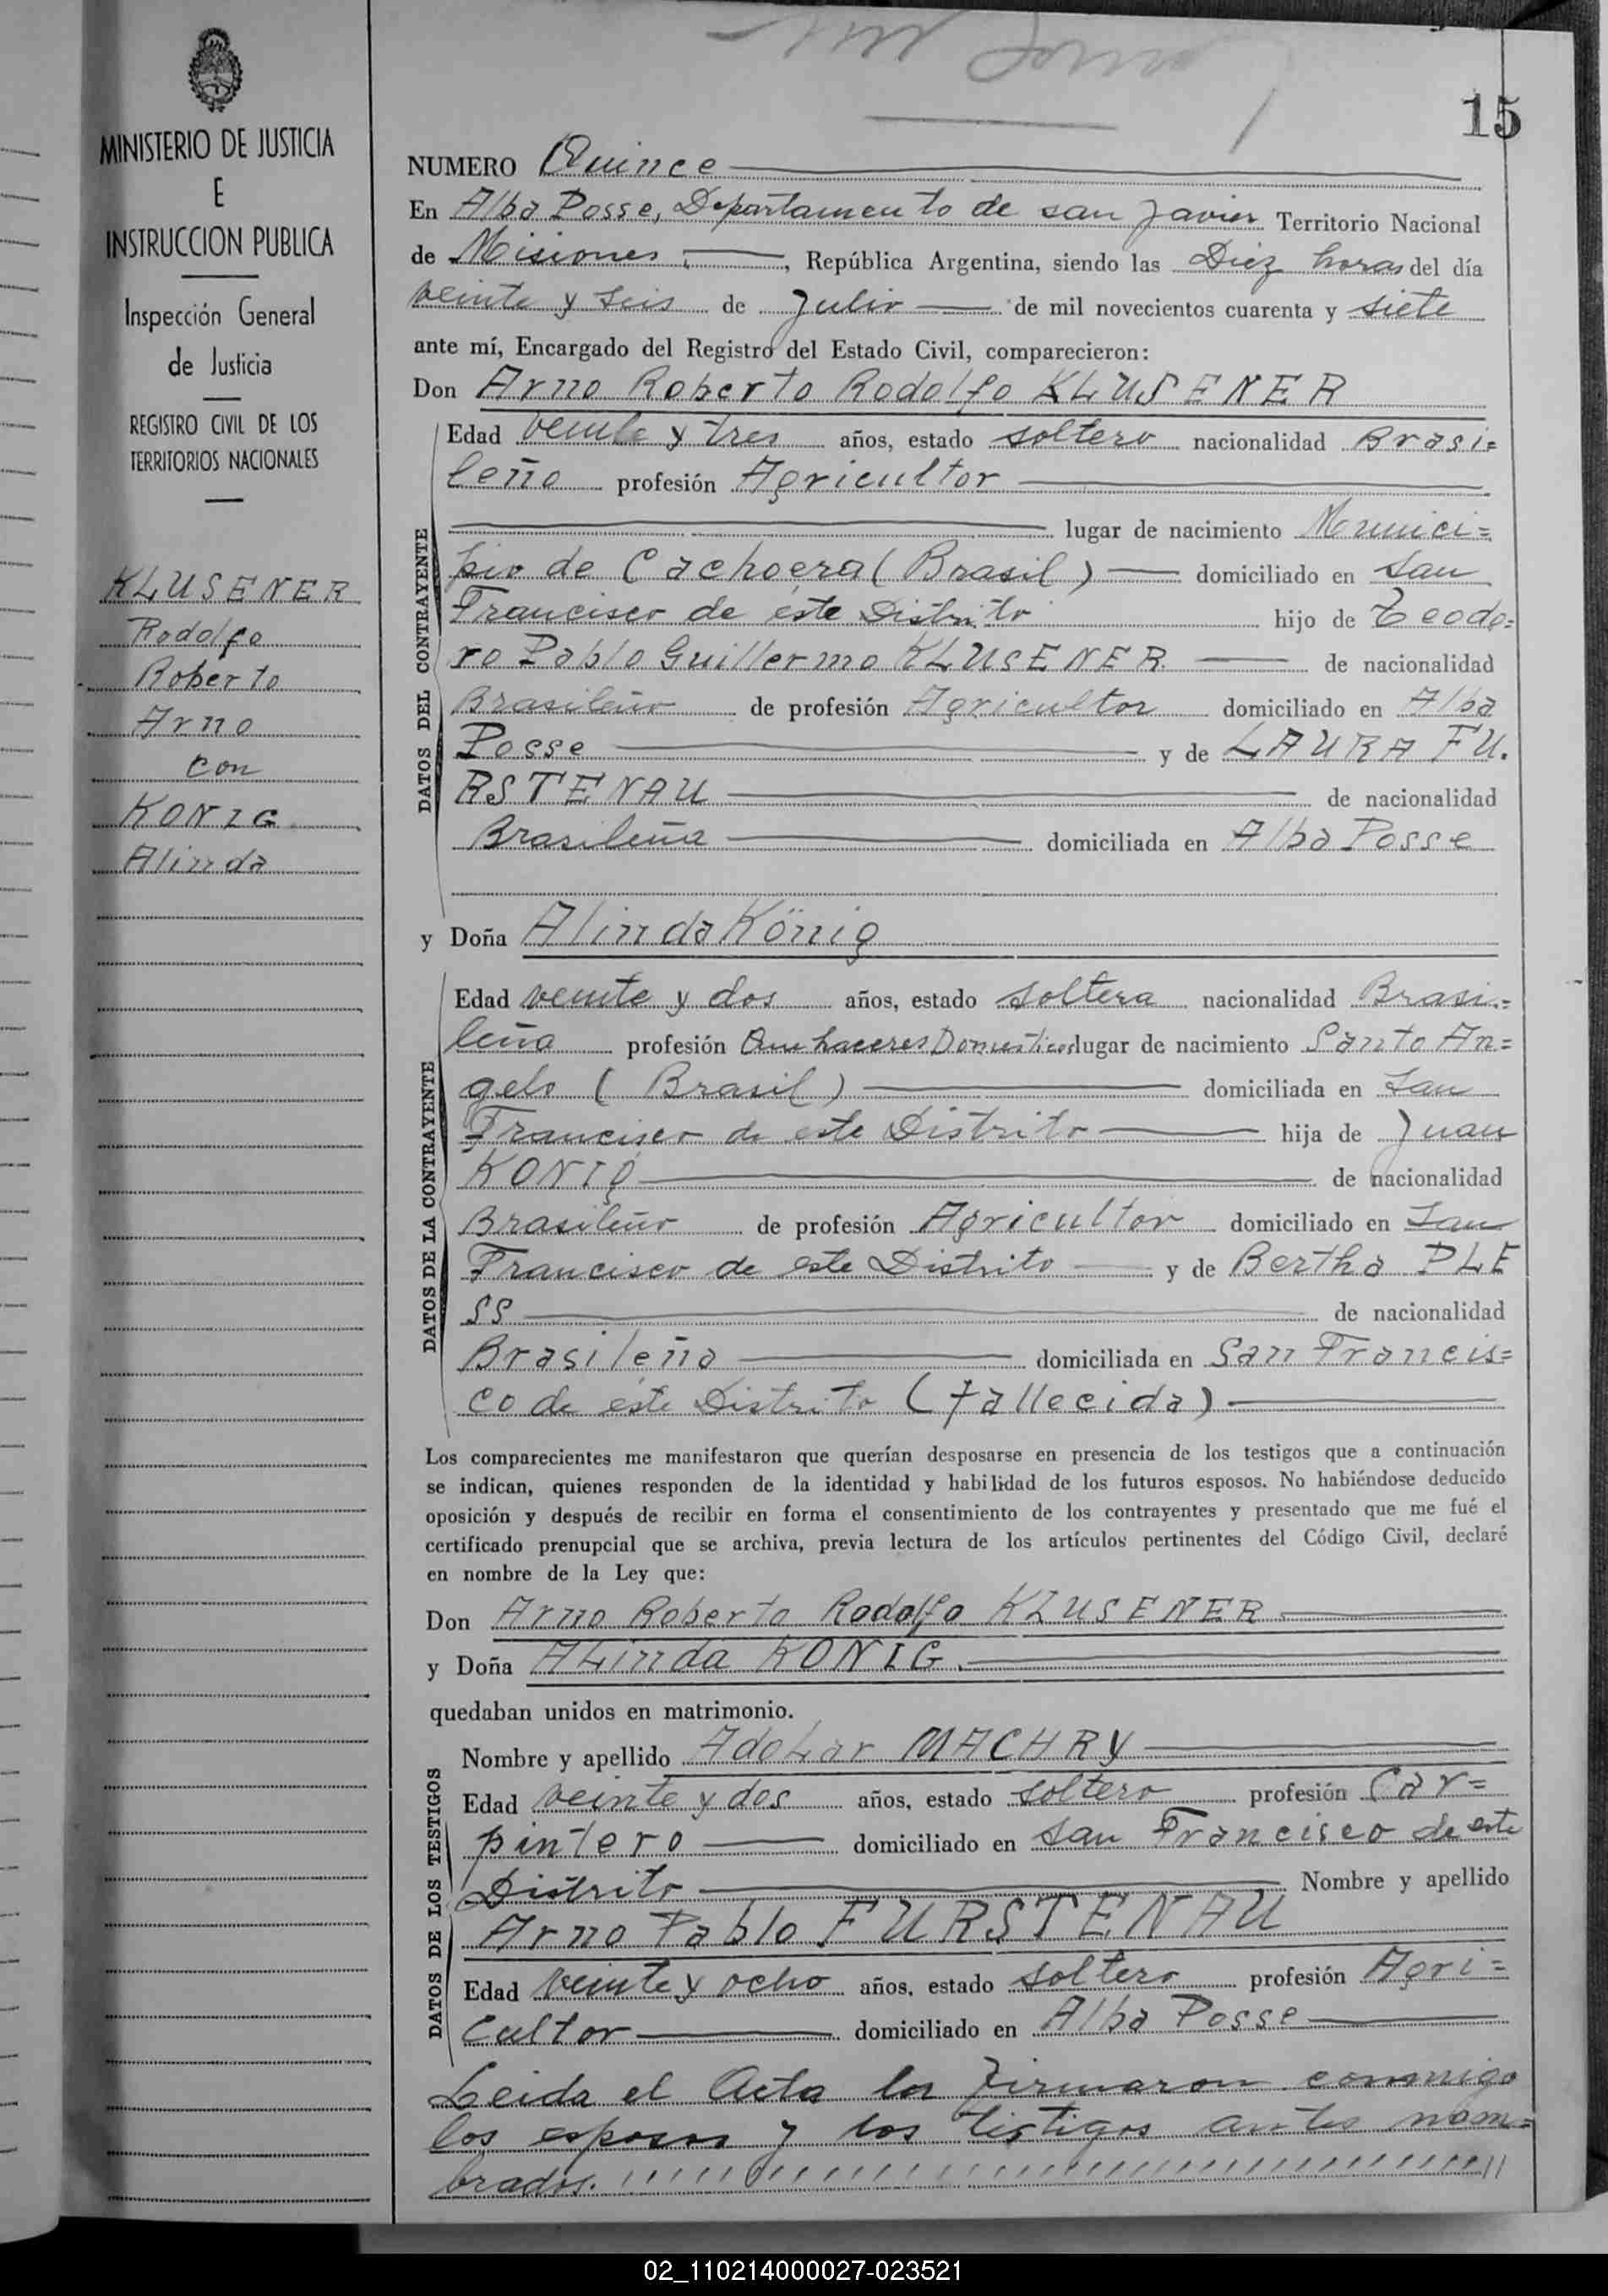 15
MINISTERIO DE JUSTICIA
E
INSTRUCCION PUBLICA
Inspección General
de Justicia
REGISTRO CIVIL DE LOS
TERRITORIOS NACIONALES
KLUSENER
Rodolfo
Roberto
Arno
con
KONIG
Alinda
NUMERO Quince
En Alba Posse, Departamento de san Javier Territorio Nacional
de Misiones, República Argentina, siendo las Diez horas del día
veinte y seis de Julio de mil novecientos cuarenta y siete
ante mí, Encargado del Registro del Estado Civil, comparecieron:
Don Arno Roberto Rodolfo KLUSENER
DATOS DEL CONTRAYENTE
Edad veinte y tres años, estado soltero nacionalidad Brasi=
leño profesión Agricultor
lugar de nacimiento Munici=
pio de Cachoera (Brasil) domiciliado en San
Francisco de éste Distrito hijo de Teodo=
ro Pablo Guillermo KLUSENER de nacionalidad
Brasileño de profesión Agricultor domiciliado en Alba
Posse y de LAURA FU.
RSTENAU de nacionalidad
Brasileña domiciliada en Alba Posse
y Doña Alinda König
DATOS DE LA CONTRAYENTE
Edad veinte y dos años, estado soltera nacionalidad Brasi.=
leña profesión Que haceres Domesticos lugar de nacimiento Santo An=
gelo (Brasil) domiciliada en San
Francisco de este Distrito hija de Juan
KONIG de nacionalidad
Brasileño de profesión Agricultor domiciliado en San
Francisco de este Distrito y de Bertha PLE
SS de nacionalidad
Brasileña domiciliada en San Francis=
co de éste Distrito (fallecida)
Los comparecientes me manifestaron que querían desposarse en presencia de los testigos que a continuación
se indican, quienes responden de la identidad y habilidad de los futuros esposos. No habiéndose deducido
oposición y después de recibir en forma el consentimiento de los contrayentes y presentado que me fué el
certificado prenupcial que se archiva, previa lectura de los artículos pertinentes del Código Civil, declaré
en nombre de la Ley que:
Don Arno Roberto Rodolfo KLUSENER
y Doña ALinda KONIG.
quedaban unidos en matrimonio.
DATOS DE LOS TESTIGOS
Nombre y apellido AdoLar MACHRY
Edad veinte y dos años, estado soltero profesión Car=
pintero domiciliado en San Francisco de este
Distrito Nombre y apellido
Arno Pablo FURSTENAU
Edad veinte y ocho años, estado soltero profesión Agri=
cultor domiciliado en Alba Posse
Leida el Acta la firmaron conmigo
los esposos y los testigos antes nom=
brados.
02_110214000027-023521